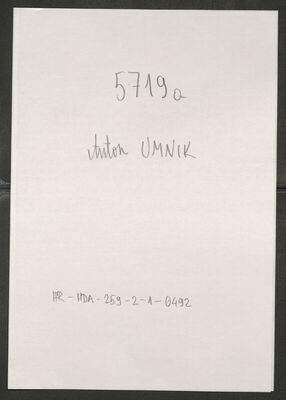 5719a
Anton UMNIK
HR-HDA-259-2-1-0492